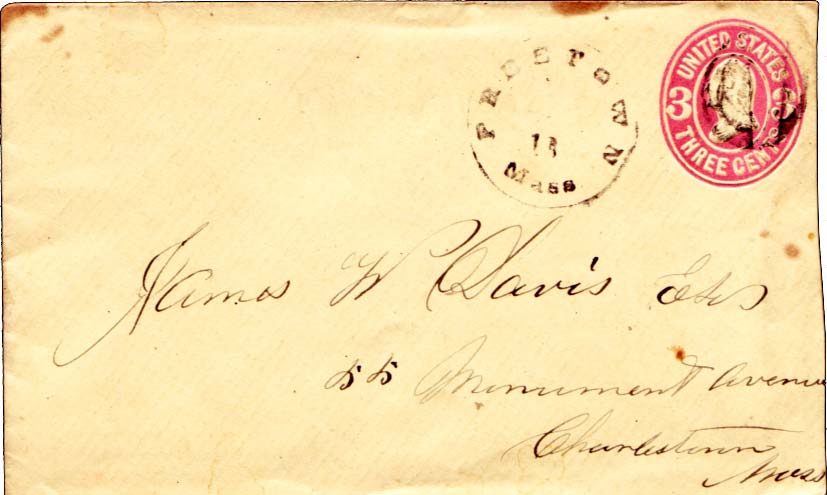 FREETOWN
18
Mass
UNITED STATES
3
THREE CENTS
James W Davis Esq
55 Monument Avenue
Charlestown
Mass